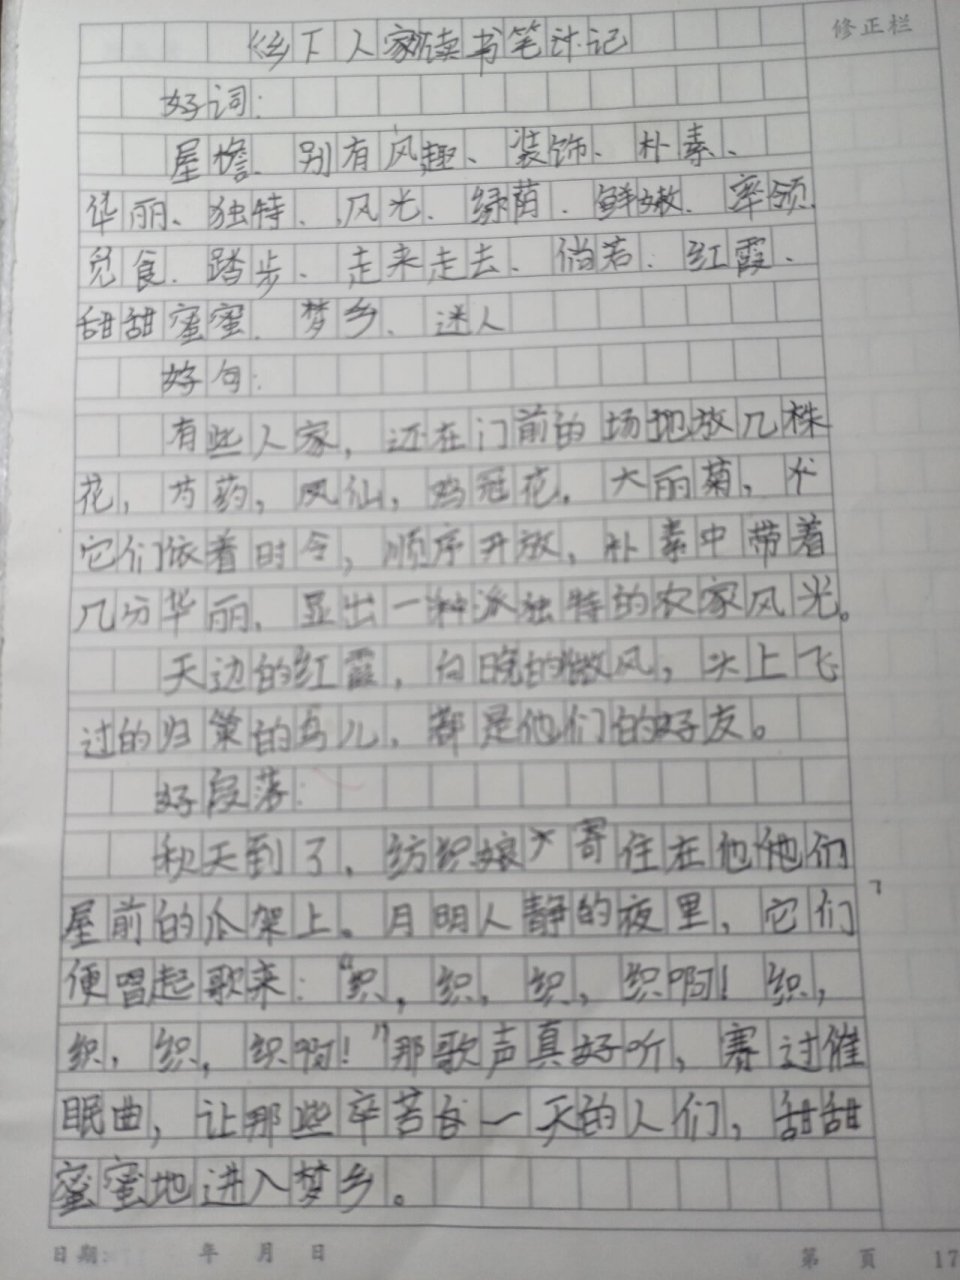 《乡下人家读书笔计记
修正栏
好词：
屋檐、别有风趣、装饰、朴素、
华丽、独特、风光、绿荫、鲜嫩、率领
觅食、踏步、走来走去、倘若、红霞、
甜甜蜜蜜、梦乡、迷人
好句：
有些人家，还在门前的场地放几株
花，芍药，凤仙，鸡冠花，大丽菊，
它们依着时令，顺序开放，朴素中带着
几分华丽，显出一种派独特的农家风光。
天边的红霞，向晚的微风，头上飞
过的归巢的鸟儿，都是他们的好友。
好段落：
秋天到了，纺织娘寄住在他他们
屋前的瓜架上。月明人静的夜里，它们
便唱起歌来：“织，织，织，织啊！织，
织，织，织啊！”那歌声真好听，赛过催
眠曲，让那些辛苦一天的人们，甜甜
蜜蜜地进入梦乡。
日期： 年 月 日
第 页 17